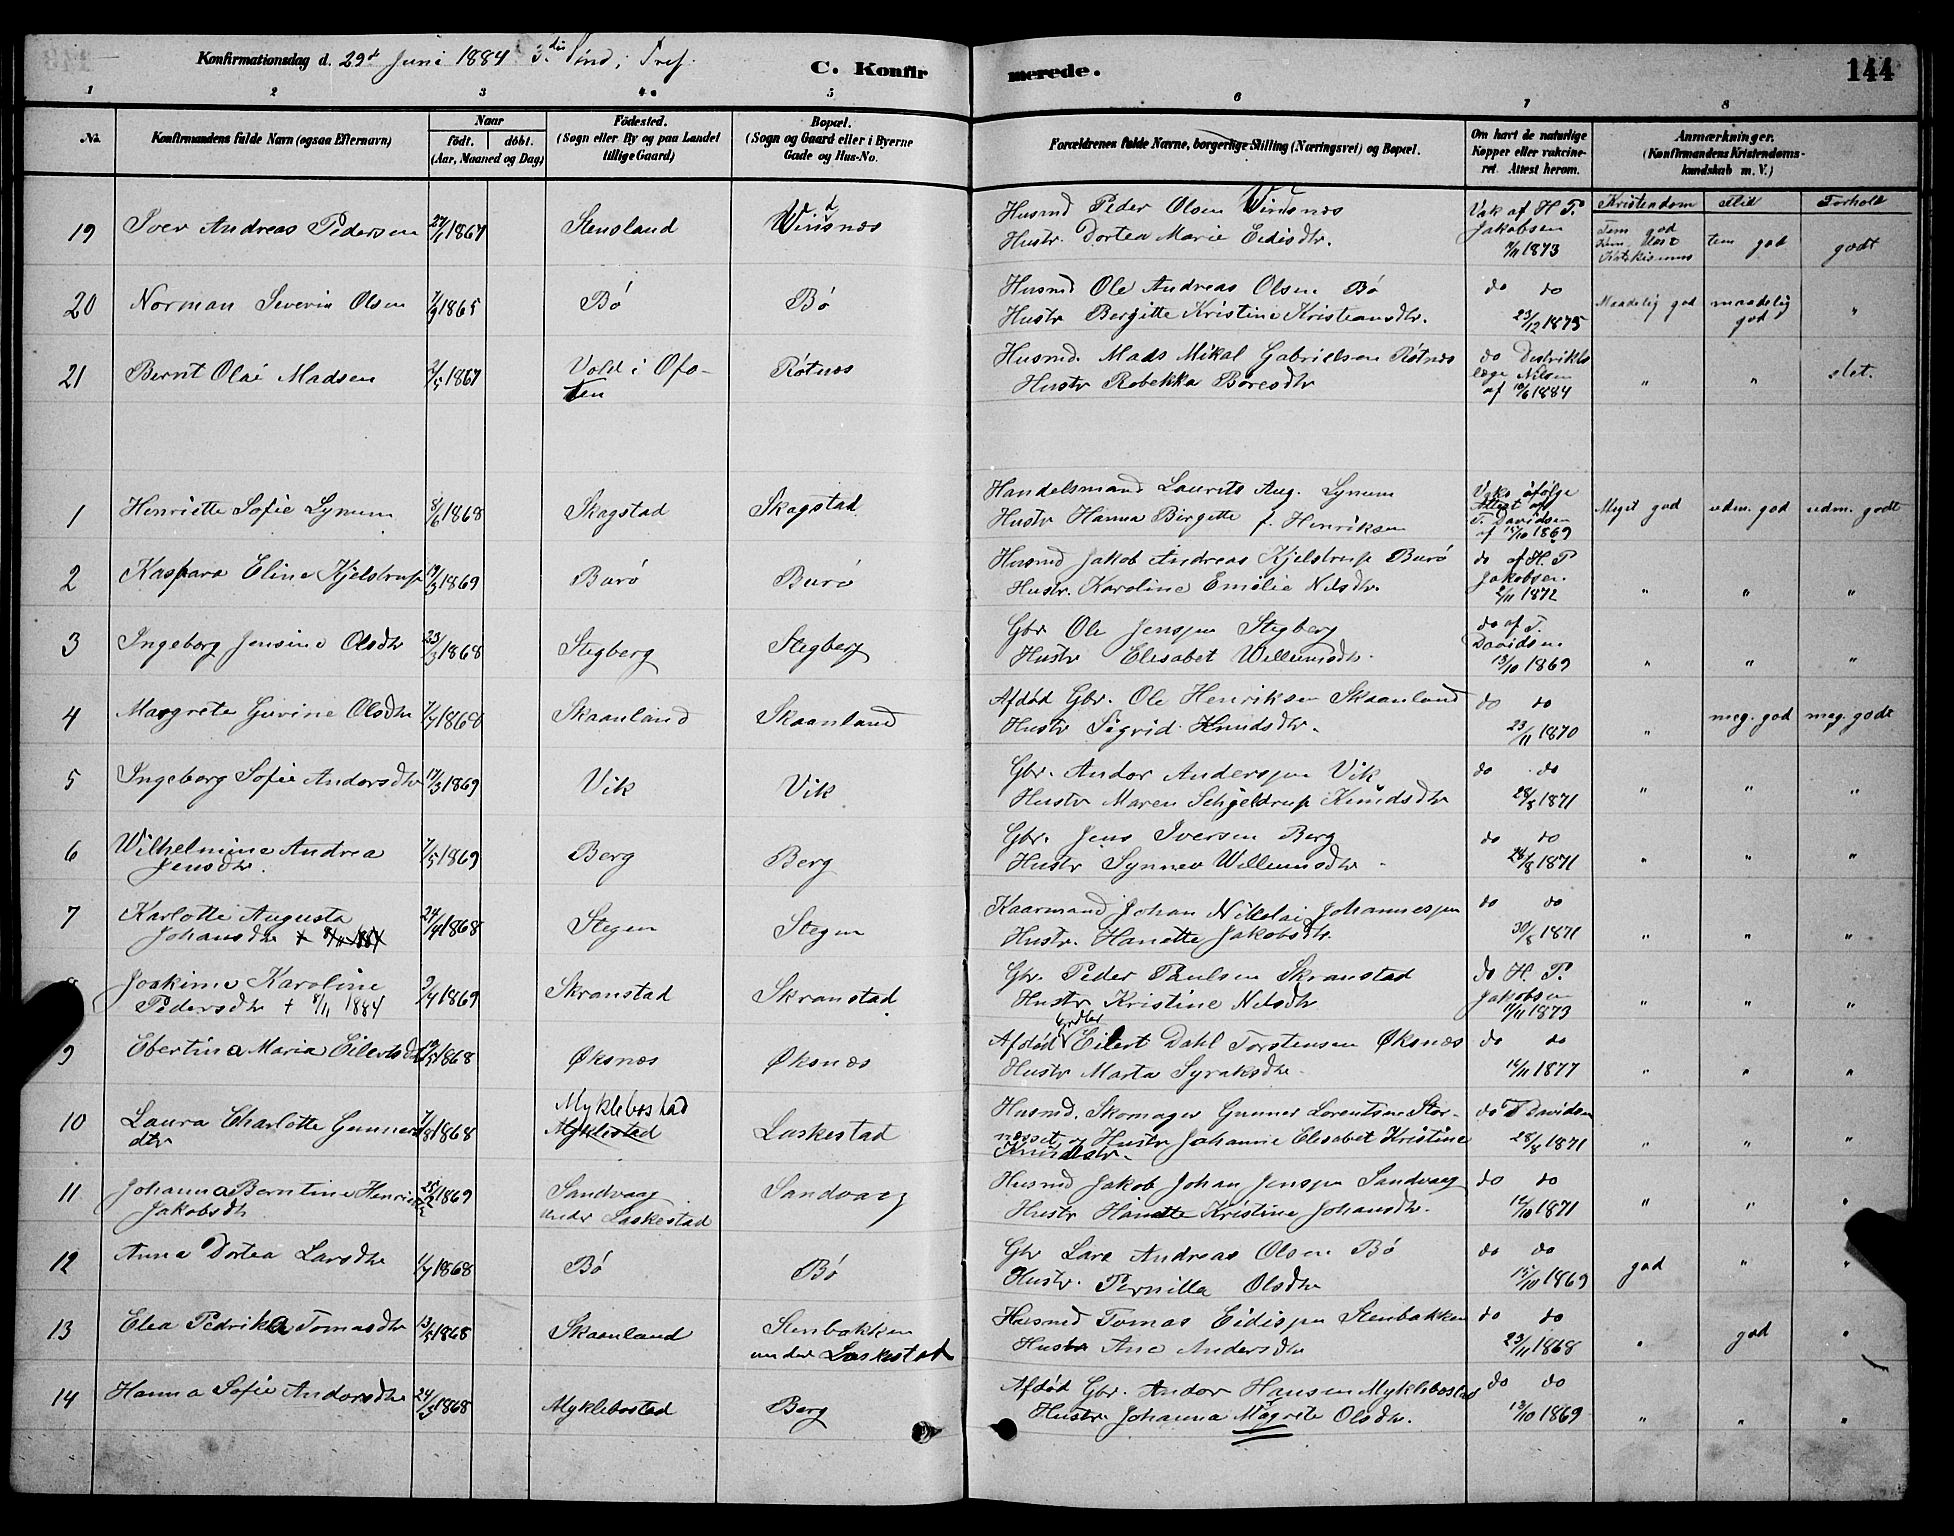 Konfirmationsdag d. 29de Juni 1884 3die Sönd. i Tref.
C. Konfirmerede.
144
1 2 3 4 a 5 6 7 8
No.
Konfirmandens fulde Navn (ogsaa Efternavn)
Naar
født. døbt.
(Aar, Maaned og Dag)
Fødested.
(Sogn eller By og paa Landet
tillige Gaard)
Bopæl.
(Sogn og Gaard eller i Byerne
Gade og Hus-No.
Forældrenes fulde Navne, borgerlige Stilling (Næringsvei) og Bopæl.
Om havt de naturlige
Kopper eller vakcine-
ret. Attest herom.
Anmærkninger.
(Konfirmandens Kristendoms-
kundskab m. V.)
Kristendom Flid Forhold
19 Iver Andreas Pedersen 27/1 1867 Stensland Vinsnæs
Husmd Peder Olsen Vindsnæs
Hustr. Dortea Marie Eidisdtr.
Vak af H. P.
Jakobsen
9/11 1873
Tem god
kun læst
Katekismus
tem god godt
20 Norman Severin Olsen 7/3 1865 Bö Bö
Husmd Ole Andreas Olsen Bö
Hustr Bergitte Kristine Kristiansdtr.
do do
23/12 1875
Maadelig god maadelig
god "
21 Bernt Olai Madsen 3/5 1867 Vold i Ofo-
ten
Rötnæs
Husmd. Mads Mikal Gabrielsen Rötnæs
Hustr Rebekka Boresdtr
do Destrikts
læge Nilsen
af 10/6 1884
" " slet.
1 Henriette Sofie Lynum 8/6 1868 Skagstad Skagstad
Handelsmand Laurits Aug. Lynum
Hustr Hanna Birgitte f. Henriksen
Vaks ifölge
Attest af
T. Davidsen
af 15/10 1869
Meget god udm. god udm. godt
2 Kaspara Eline Kjelstrup 19/3 1869 Burö Burö
Husmd Jakob Andreas Kjelstrup Burö
Hustr. Karoline Emilie Nilsdtr.
do af H. P.
Jakobsen
2/11 1872
" " "
3 Ingeborg Jensine Olsdtr 23/3 1868 Stegberg Stegberg
Gbr Ole Jenspen Stegberg
Hustr Elisabet Willumsdtr.
do af T.
Davidsen
13/10 1869
" " "
4 Margrete Gurine Olsdtr 7/7 1868 Skaanland Skaanland
Afdød Gbr. Ole Henriksen Skaanland
Hustr Sigrid Knudsdtr.
do do
23/11 1870
" meg. god meg. godt
5 Ingeborg Sofie Andorsdtr 17/3 1869 Vik Vik
Gbr. Andor Anderspen Vik
Hustr Maren Schjeldrup Knudsdtr
do do
28/8 1871
" " "
6 Wilhelmine Andrea
Jensdtr.
7/5 1869 Berg Berg
Gbr. Jens Iversen Berg
Hustr Synnev Willumsdtr
do do
28/8 1871
" " "
7 Karlotte Augusta
Johansdtr + 8/11 1884
24/4 1868 Stegen Stegen
Kaarmand Johan Nikolai Johannespen
Hustr. Hanette Jakobsdtr.
do do
30/8 1871
" " "
Joakime Karoline
Pedersdtr + 8/11 1884
9/4 1869 Skranstad Skranstad
Gbr. Peder Paulsen Skranstad
Hustr Kristine Nilsdtr
do H. P.
Jakobsen
11/11 1873
" " "
9 Ebertina Maria Eilertsdtr 19/5 1868 Øksnæs Øksnæs
Afdöd Eilert Dahl Torstensen Øksnæs
Hustr Marta Syraksdtr
do do
14/11 1877
" " "
10 Laura Charlotte Gunners
dtr
7/8 1868 Myklebostad
Myklestad
Laskestad
Husmd. Skomager Gunner Lorentsen Stor-
næsset og Hustr Johanne Elisabet Kristine
Knudsdtr.
do T Davidsen
28/8 1871
" " "
11 Johanna Berntine Henriette
Jakobsdtr
25/2 1869 Sandvaag
under Laskestad
Sandvaag
Husmd Jakob Johan Jenspen Sandvaag
Hustr Hanette Kristine Johansdtr.
do do
14/10 1871
" " "
12 Anna Dortea Larsdtr 11/7 1868 Bö Bö
Gbr Lars Andreas Olsen Bö
Hustr. Pernilla Olsdtr
do do
15/10 1869
god " "
13 Elea Pedrikka Tomasdtr 13/5 1868 Skaanland Stenbakken
under Laskestad
Husmd Tomas Eidispen Stenbakken
Hustr Ane Andersdtr
do do
23/11 1868
" god "
14 Hanna Sofie Andorsdtr 24/3 1868 Myklebostad Berg
Afdöd Gbr. Andor Hansen Myklebostad
Hustr. Johanna Magrete Olsdtr.
do do
13/10 1869
" " "